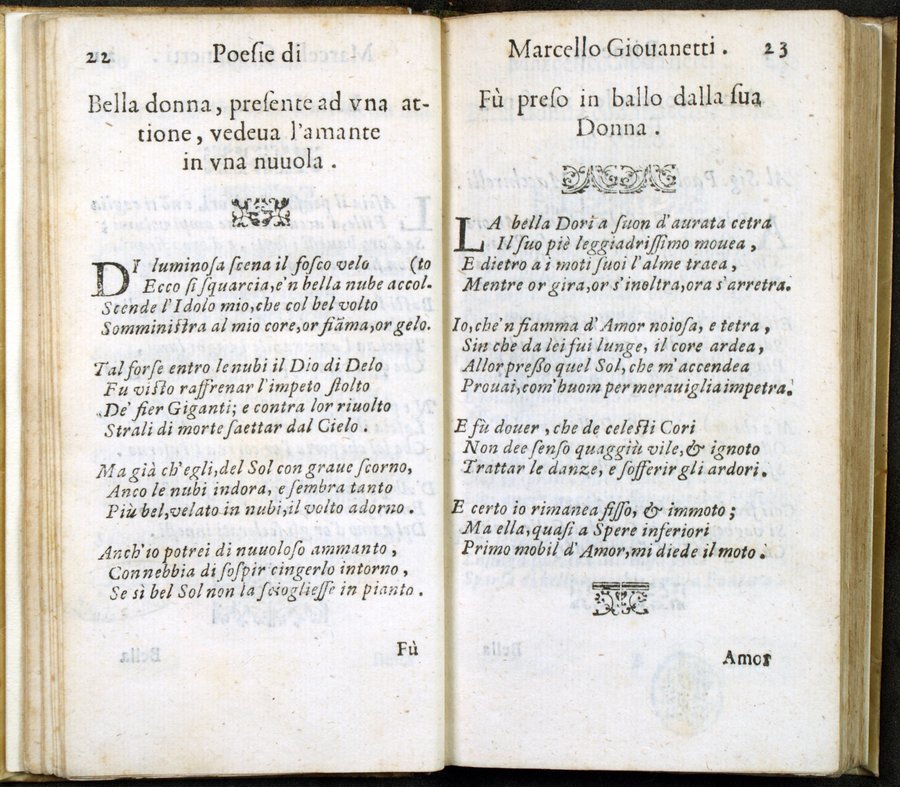 22 Poesie di
Bella donna, presente ad vna at-
tione, vedeua l'amante
in vna nuuola.
DI luminosa scena il fosco velo (to
Ecco si squarcia, e'n bella nube accol-
Scende l'Idolo mio, che col bel volto
Somministra al mio core, or fiāma, or gelo.
Tal forse entro le nubi il Dio di Delo
Fu visto raffrenar l'impeto stolto
De' fier Giganti; e contra lor riuolto
Strali di morte saettar dal Cielo.
Ma già ch'egli, del Sol con graue scorno,
Anco le nubi indora, e sembra tanto
Più bel, velato in nubi, il volto adorno.
Anch'io potrei di nuuoloso ammanto,
Con nebbia di sospir cingerlo intorno,
Se sì bel Sol non la sciogliesse in pianto.
Fù
Marcello Giouanetti. 23
Fù preso in ballo dalla sua
Donna.
LA bella Dori a suon d'aurata cetra
Il suo piè leggiadrissimo mouea,
E dietro a i moti suoi l'alme traea,
Mentre or gira, or s'inoltra, ora s'arretra.
Io, che'n fiamma d'Amor noiosa, e tetra,
Sin che da lei fui lunge, il core ardea,
Allor presso quel Sol, che m'accendea
Prouai, com'huom per merauiglia impetra.
E fù douer, che de celesti Cori
Non dee senso quaggiù vile, & ignoto
Trattar le danze, e sofferir gli ardori.
E certo io rimanea fisso, & immoto;
Ma ella, quasi a Spere inferiori
Primo mobil d'Amor, mi diede il moto.
Amor